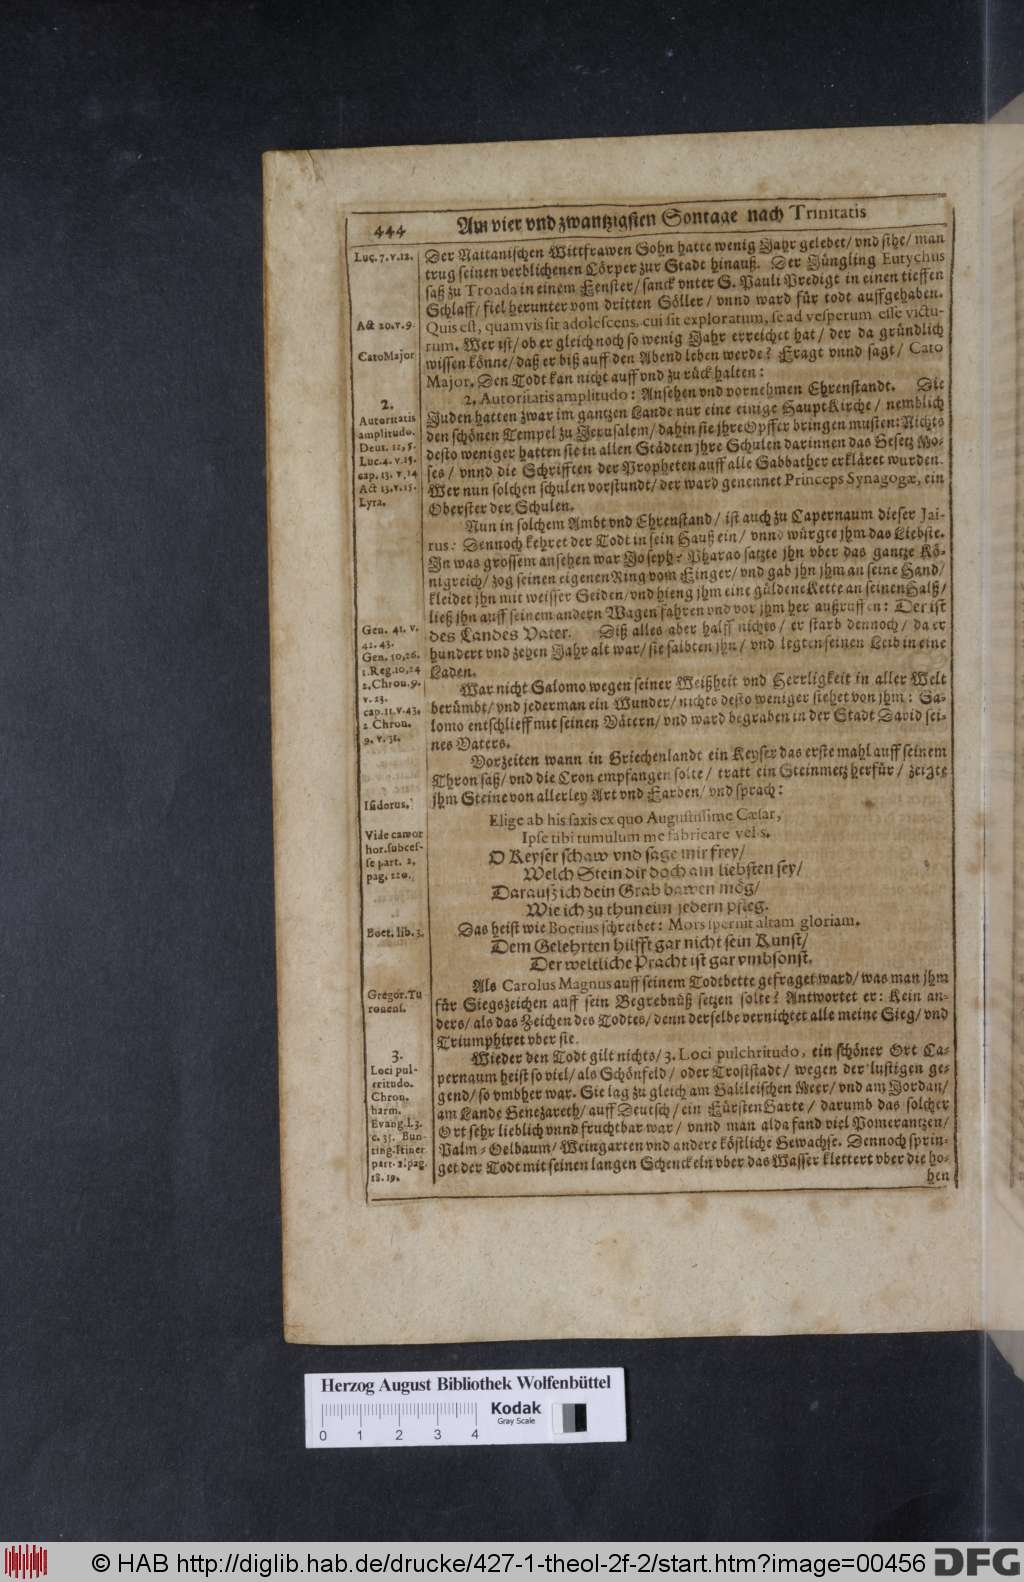 444 Am vier vnd zwantzigsten Sontage nach Trinitatis
Luc. 7. v. 12.
Act 20. v. 9.
Cato Major
2.
Autoritatis
amplitudo.
Deut. 12, 5.
Luc. 4. v. 15.
cap. 13. v. 14
Act 13. v. 15.
Lyra.
Gen. 41. v.
42. 43.
Gen. 50, 26.
1. Reg. 10, 24
2. Chron. 9.
v. 23.
cap. 11. v. 43.
2 Chron.
9. v. 31.
Isidorus.
Vide cawor
hor. subces-
se part. 2.
pag. 220.
Boet. lib. 3.
Gregor. Tu
ronens.
3.
Loci pul-
critudo.
Chron.
harm.
Evang. l. 3.
c. 35. Bun-
ting. Itiner
part. 2. pag.
18. 19.
Der Naitanischen Wittfrawen Sohn hatte wenig Jahr gelebet/ vnd sihe/ man
trug seinen verblichenen Cörper zur Stadt hinauß. Der Jüngling Eutychus
saß zu Troada in einem Fenster/ sanck vnter S. Pauli Predigt in einen tieffen
Schlaff/ fiel herunter vom dritten Söller/ vnnd ward für todt auffgehaben.
Quis est, quamvis sit adolescens, cui sit exploratum, se ad vesperum esse victu-
rum. Wer ist/ ob er gleich noch so wenig Jahr erreichet hat/ der da gründlich
wissen könne/ daß er biß auff den Abend leben werde? Fragt vnnd sagt/ Cato
Major. Den Todt kan nicht auff vnd zu rück halten:
2. Autoritatis amplitudo: Ansehen vnd vornehmen Ehrenstandt. Die
Juden hatten zwar im gantzen Lande nur eine einige HauptKirche/ nemblich
den schönen Tempel zu Jerusalem/ dahin sie jhre Opffer bringen musten: Nichts
desto weniger hatten sie in allen Städten jhre Schulen darinnen das Gesetz Mo-
ses/ vnnd die Schrifften der Propheten auff alle Sabbather erkläret wurden.
Wer nun solchen schulen vorstundt/ der ward genennet Princeps Synagogæ, ein
Oberster der Schulen.
Nun in solchem Ambt vnd Ehrenstand/ ist auch zu Capernaum dieser Jai-
rus: Dennoch kehret der Todt in sein Hauß ein/ vnnd würgte jhm das Liebste.
In was grossem ansehen war Joseph? Pharao satzte jhn vber das gantze Kö-
nigreich/ zog seinen eigenen Ring vom Finger/ vnd gab jhn jhm an seine Hand/
kleidet jhn mit weisser Seiden/ vnd hieng jhm eine güldene Kette an seinen Halß/
ließ jhn auff seinem andern Wagen fahren vnd vor jhm her außruffen: Der ist
des Landes Vater. Diß alles aber halff nichts/ er starb dennoch/ da er
hundert vnd zehen Jahr alt war/ sie salbten jhn/ vnd legten seinen Leib in eine
Laden.
War nicht Salomo wegen seiner Weißheit vnd Herrligkeit in aller Welt
berümbt/ vnd jederman ein Wunder/ nichts desto weniger stehet von jhm: Sa-
lomo entschlieff mit seinen Vätern/ vnd ward begraben in der Stadt David sei-
nes Vaters.
Vorzeiten wann in Griechenlandt ein Keyser das erste mahl auff seinem
Thron saß/ vnd die Cron empfangen solte/ tratt ein Steinmetz herfür/ zeigte
jhm Steine von allerley Art vnd Farben/ vnd sprach:
Elige ab his saxis ex quo Augustissime Cæsar,
Ipse tibi tumulum me fabricare velis.
O Keyser schaw vnd sage mir frey/
Welch Stein dir doch am liebsten sey/
Darauß ich dein Grab bawen mög/
Wie ich zu thun eim jedern pfleg.
Das heist wie Boetius schreibet: Mors spernit altam gloriam.
Dem Gelehrten hilfft gar nicht sein Kunst/
Der weltliche Pracht ist gar vmbsonst.
Als Carolus Magnus auff seinem Todtbette gefraget ward/ was man jhm
für Siegszeichen auff sein Begrebnüß setzen solte? Antwortet er: Kein an-
ders/ als das Zeichen des Todtes/ denn derselbe vernichtet alle meine Sieg/ vnd
Triumphiret vber sie.
Wieder den Todt gilt nichts/ 3. Loci pulchritudo, ein schöner Ort Ca-
pernaum heist so viel/ als Schönfeld/ oder Troststadt/ wegen der lustigen ge-
gend/ so vmbher war. Sie lag zu gleich am Galileischen Meer/ vnd am Jordan/
am Lande Genezareth/ auff Deutsch/ ein FürstenGarte/ darumb das solcher
Ort sehr lieblich vnnd fruchtbar war/ vnnd man alda fand viel Pomerantzen/
Palm-Oelbaum/ Weingarten vnd andere köstliche Gewachse. Dennoch sprin-
get der Todt mit seinen langen Schenckeln vber das Wasser klettert vber die ho-
hen
Herzog August Bibliothek Wolfenbüttel
Kodak
Gray Scale
0 1 2 3 4
© HAB http://diglib.hab.de/drucke/427-1-theol-2f-2/start.htm?image=00456
DFG